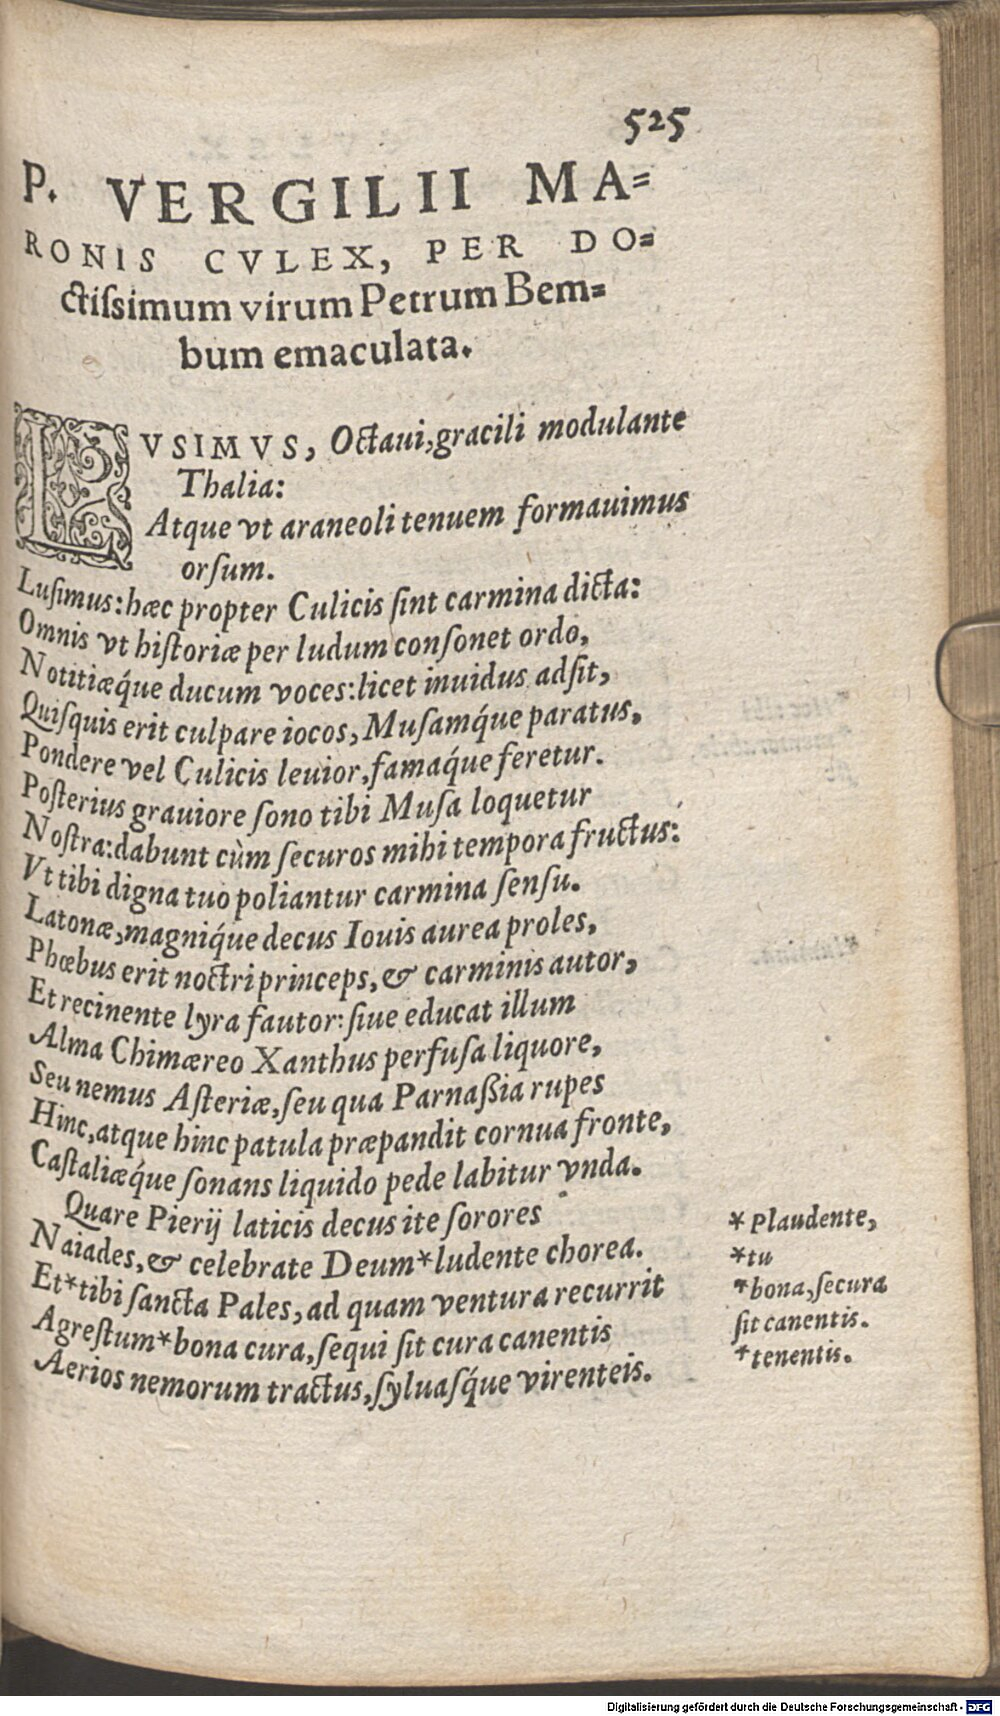 525
P. VERGILII MA=
RONIS CVLEX, PER DO=
ctiſsimum virum Petrum Bem=
bum emaculata.
LVSIMVS, Octaui, gracili modulante
Thalia:
Atque vt araneoli tenuem formauimus
orſum.
Luſimus: hæc propter Culicis ſint carmina dicta:
Omnis vt hiſtoriæ per ludum conſonet ordo,
Notitiæq́ue ducum voces: licet inuidus adſit,
Quiſquis erit culpare iocos, Muſamq́ue paratus,
Pondere vel Culicis leuior, famaq́ue feretur.
Poſterius grauiore ſono tibi Muſa loquetur
Noſtra: dabunt cùm ſecuros mihi tempora fructus:
Vt tibi digna tuo poliantur carmina ſenſu.
Latonæ, magniq́ue decus Iouis aurea proles,
Phœbus erit noctri princeps, & carminis autor,
Et recinente lyra fautor: ſiue educat illum
Alma Chimæreo Xanthus perfuſa liquore,
Seu nemus Aſteriæ, ſeu qua Parnaßia rupes
Hinc, atque hinc patula præpandit cornua fronte,
Caſtaliæq́ue ſonans liquido pede labitur vnda.
Quare Pierij laticis decus ite ſorores
Naiades, & celebrate Deum*ludente chorea.
Et*tibi ſancta Pales, ad quam ventura recurrit
Agreſtum*bona cura, ſequi ſit cura canentis
Aerios nemorum tractus, ſyluaſq́ue virenteis.
*Plaudente,
*tu
*bona, ſecura
ſit canentis.
*tenentis.
Digitalisierung gefördert durch die Deutsche Forschungsgemeinschaft - DFG